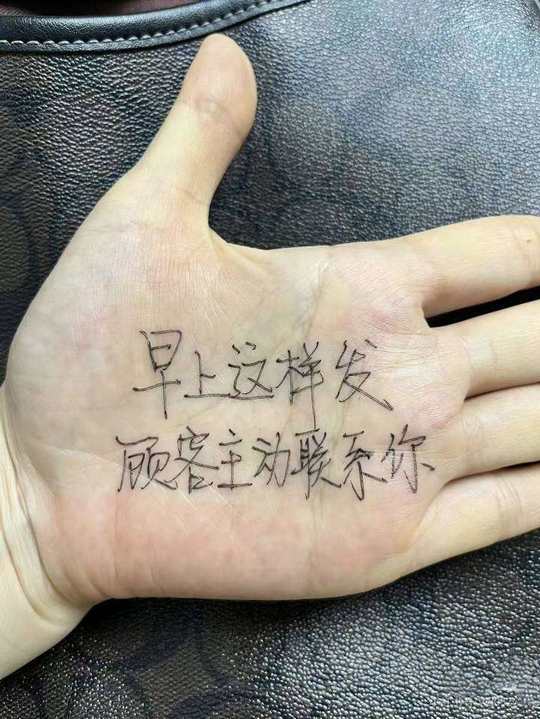 早上这样发
顾客主动联系你